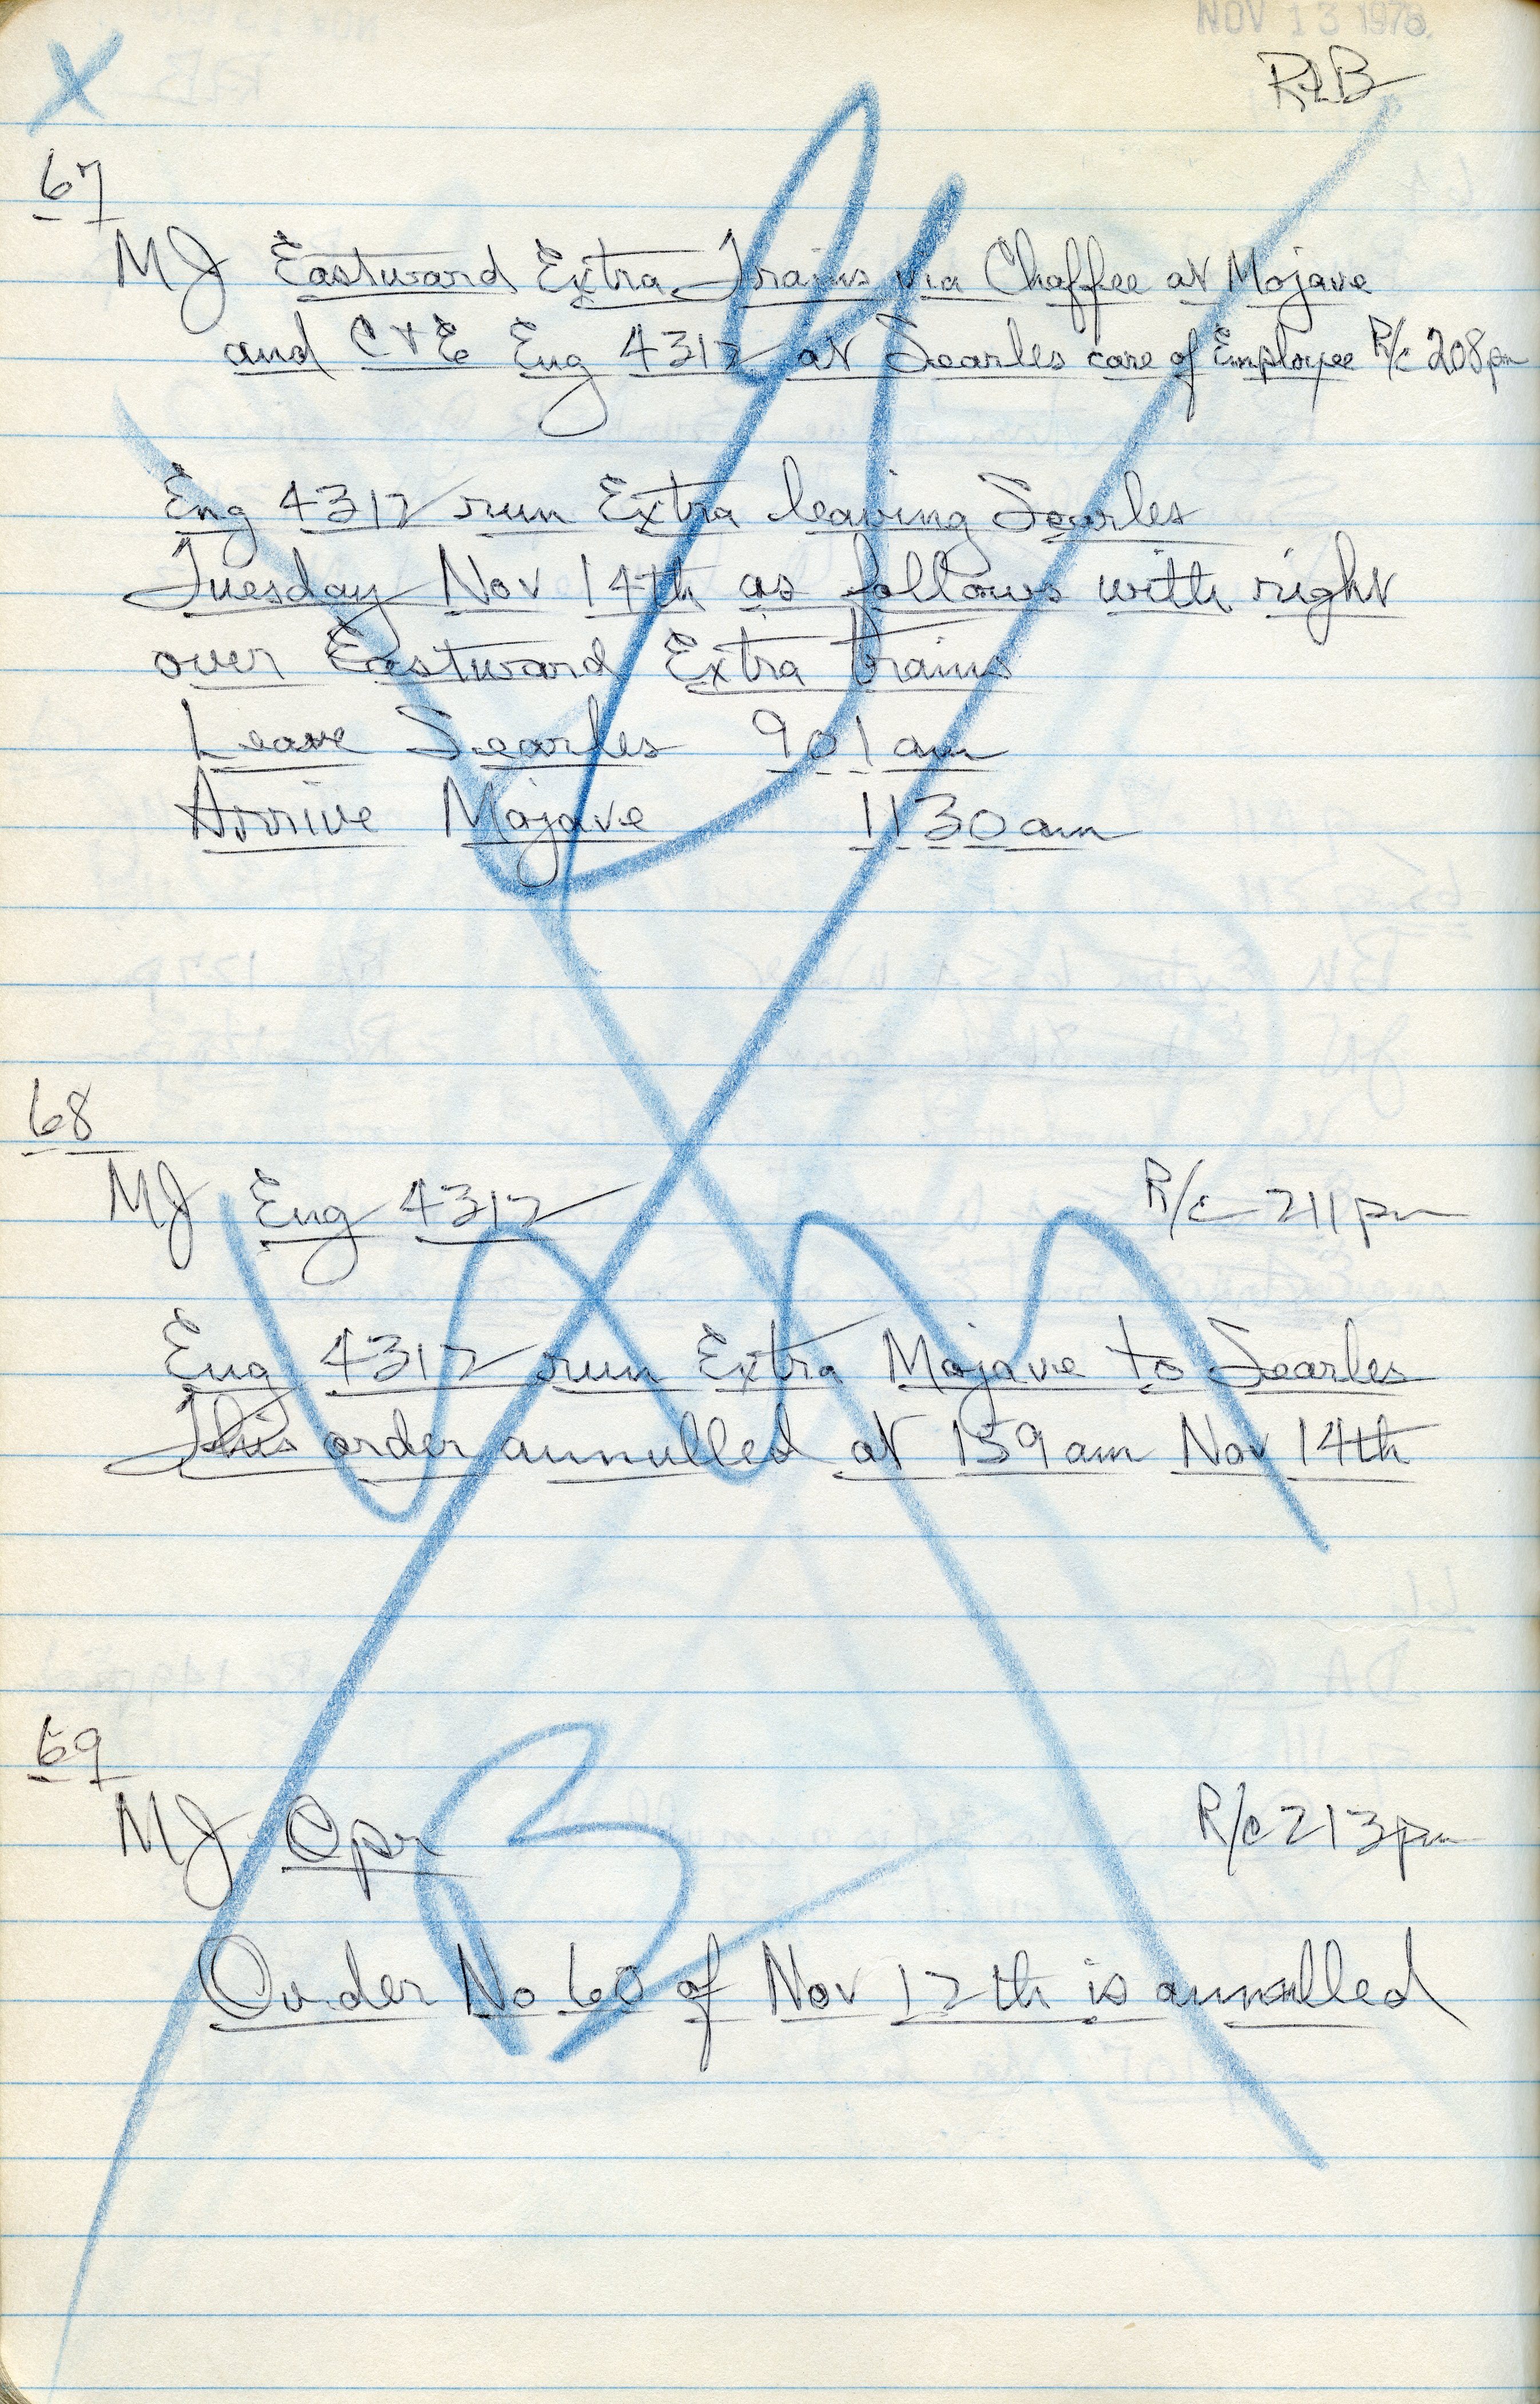 NOV 13 1978
RLB
67
MJ Eastward Extra Trains via Chaffee at Mojave
and C&E Eng 4312 at Searles care of Employee R/c 208pm
Eng 4312 run Extra leaving Searles
Tuesday Nov 14th as follows with right
over Eastward Extra trains
Leave Searles 901am
Arrive Mojave 1130am
68
MJ Eng 4312 R/c 211pm
Eng 4312 run Extra Mojave to Searles
This order annulled at 159am Nov 14th
69
MJ Opr R/c 213pm
Order No 60 of Nov 12th is annulled